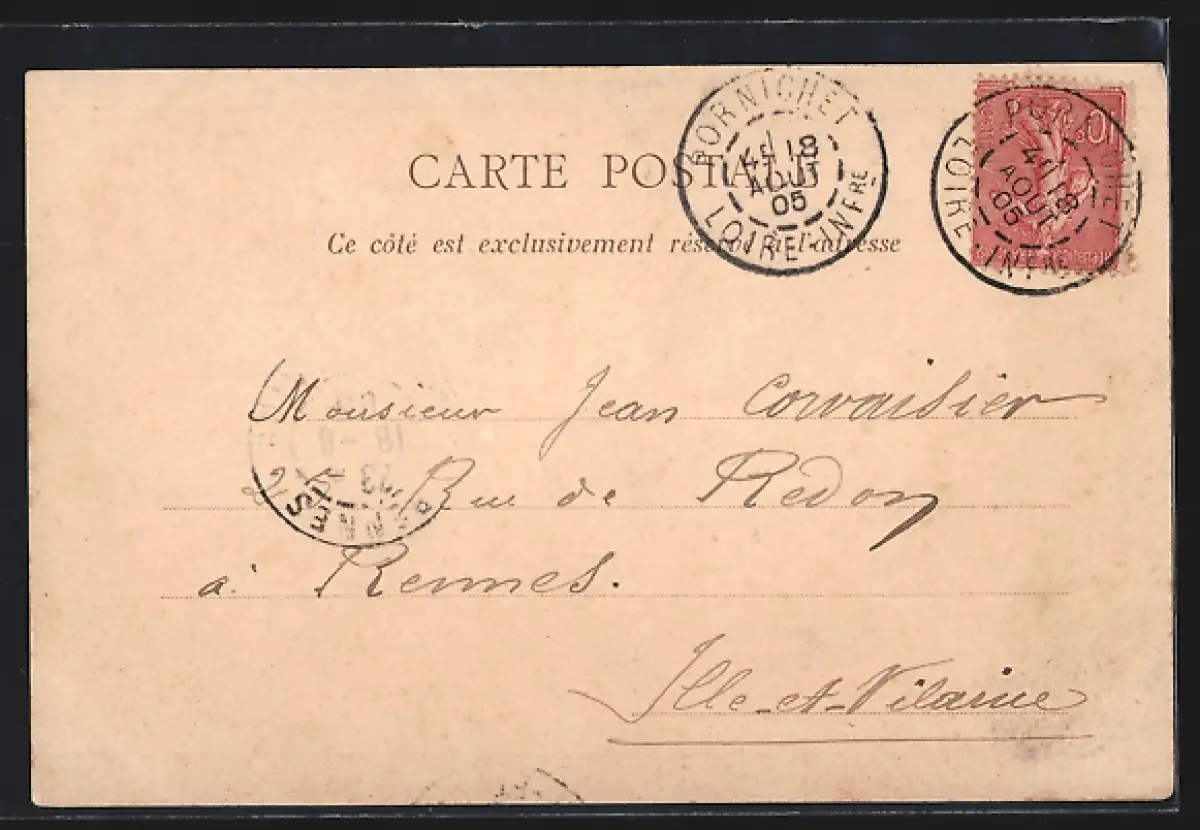 PORNICHET
4E 18
AOUT
05
LOIRE-INFRE
4E 18
AOUT
05
LOIRE INFRE
CARTE POSTALE
Ce côté est exclusivement réservé à l'adresse
Monsieur Jean Corvaisier
25 Rue de Redon
RENNES
à Rennes.
Ille-et-Vilaine